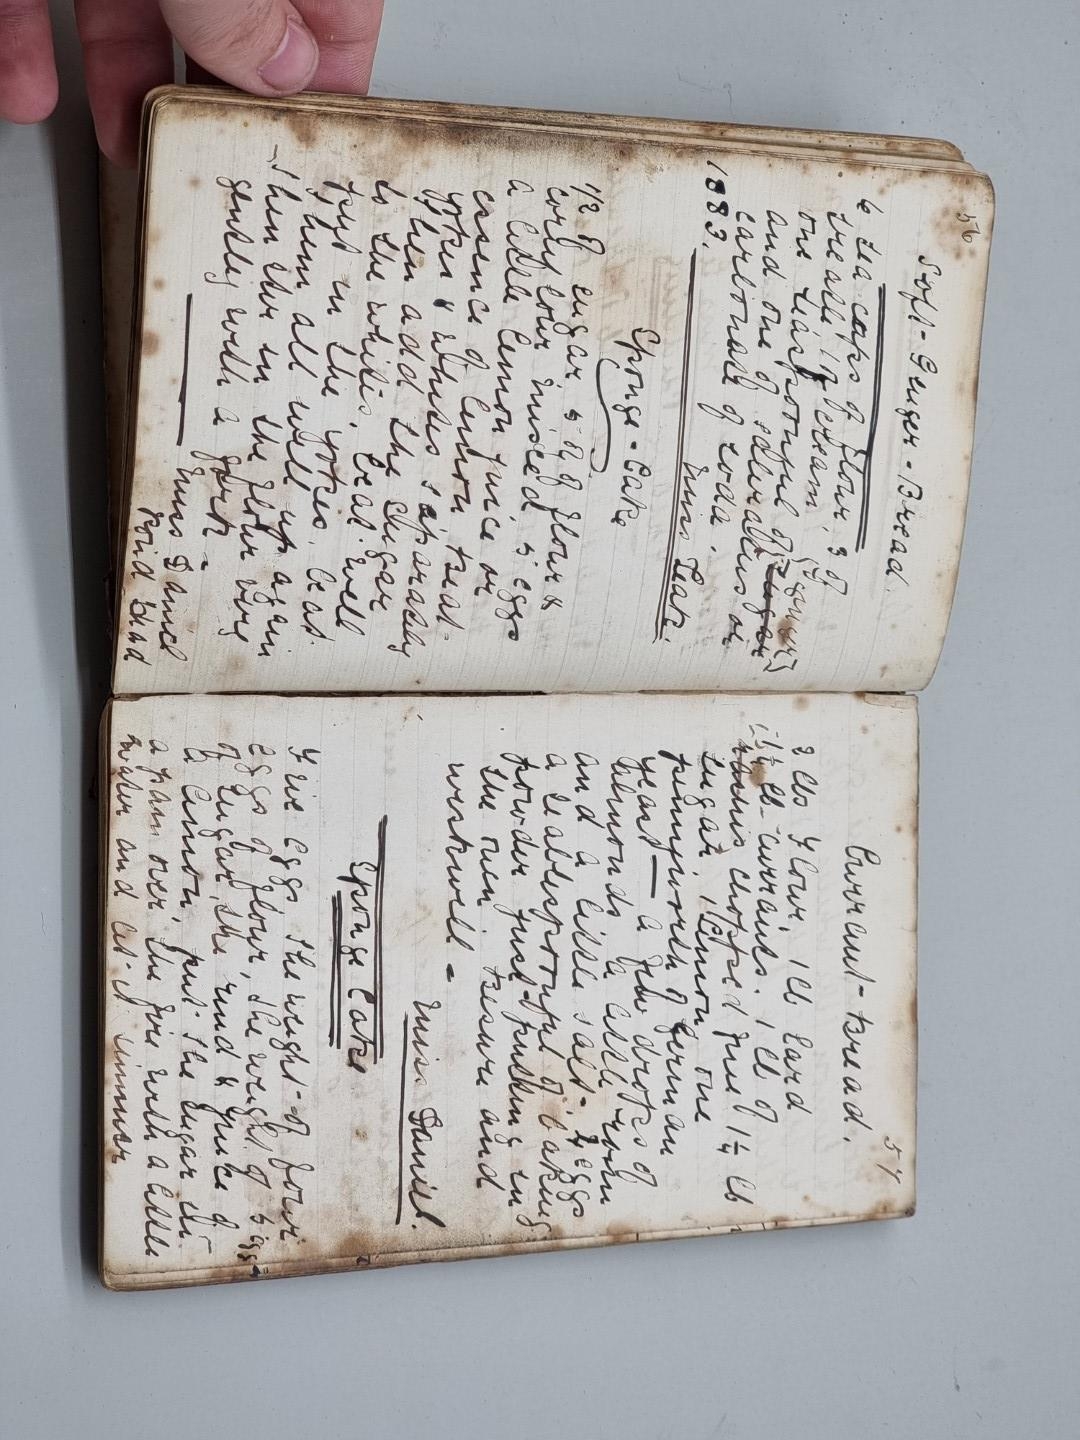 56
Soft-Ginger-Bread.
6 tea cups of flour, 3 of
treacle 1 of cream, 1 of
one teaspoonful of ginger
and one of saleratus or
carbonate of soda.
1883. Miss Leah.
Sponge-Cake
1/2 lb sugar, 5 of flour &
corn flour mixed 5 eggs
a little lemon juice or
essence of lemon Beat
yokes & whites separately
then add the sugar
to the whites, beat well
put in the yokes, beat
them all well up again
then stir in the flour very
gently with a fork.
Miss Daniel
57
Currant-Bread.
2 lbs flour, 1 lb lard
1 1/4 lb currants. 1 lb of
chopped fine 1 1/4 lb
sugar, 1 lemon one
pennyworth of German
yeast — a few drops of
almonds a little rose
and a little salt, 4 eggs
a tablespoonful of baking
powder just putting in
the oven. Besure and
work well =
Miss Daniel.
Sponge Cake
Five Eggs the weight of four
Eggs of flour, the weight of 5 eggs
of sugar, the rind & juice of
a lemon, put the sugar in
a pan over the fire with a little
water and let it simmer